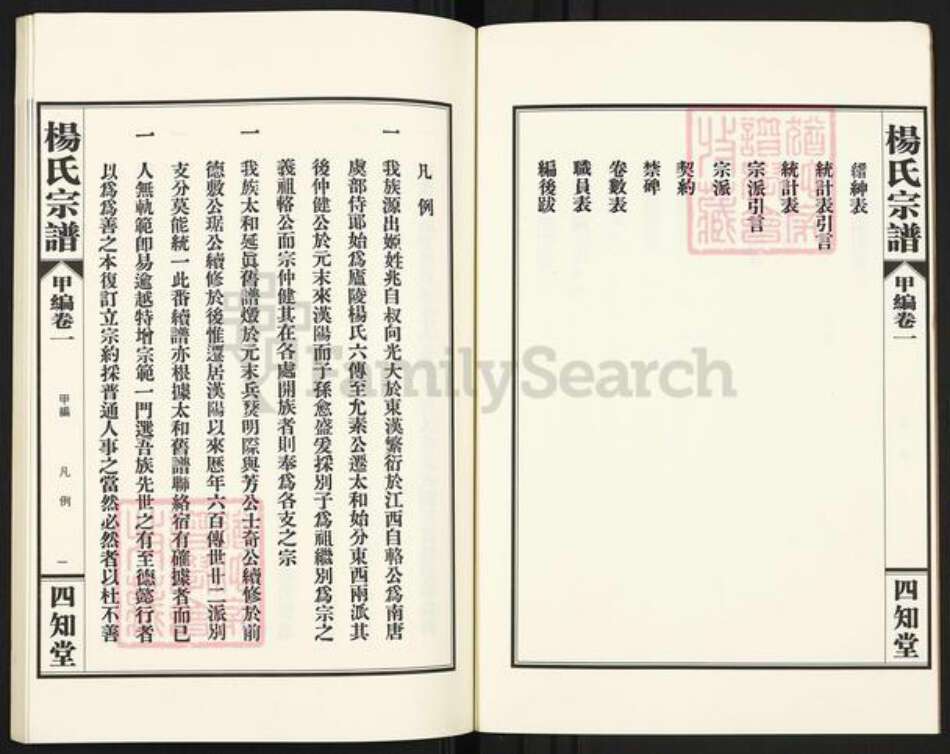 楊氏宗譜
甲編卷一
四知堂
縉紳表
統計表引言
統計表
宗派引言
宗派
契約
禁碑
卷數表
職員表
編後跋
凡例
一 我族源出姬姓兆自叔向光大於東漢繁衍於江西自輅公為南唐
虞部侍郎始為廬陵楊氏六傳至允素公遷太和始分東西兩派其
後仲健公於元末來漢陽而子孫愈盛爰採別子為祖繼別為宗之
義祖輅公而宗仲健其在各處開族者則奉為各支之宗
一 我族太和延眞舊譜燬於元末兵燹明際與芳公士奇公續修於前
德敷公琚公續修於後惟遷居漢陽以來歷年六百傳世廿二派別
支分莫能統一此番續譜亦根據太和舊譜聯絡宿有確據者而已
一 人無軌範卽易逾越特增宗範一門選吾族先世之有至德懿行者
以為為善之本復訂立宗約採普通人事之當然必然者以杜不善
楊氏宗譜
甲編卷一
甲編
凡例
一
四知堂
FamilySearch